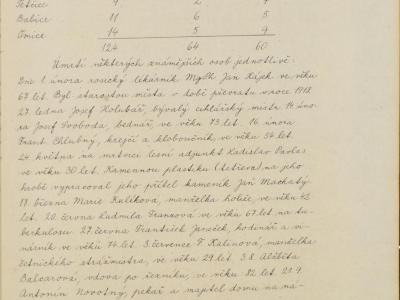 Tetčice 9 2 7
Babice 11 6 5
Omice 14 5 9
124 64 60
Úmrtí některých známějších osob jednotlivě:
Dne 1. února rosický lékárník Mgph Jan Hájek ve věku
67 let. Byl starostou města v době převratu v roce 1918.
27. ledna Josef Holubář, bývalý cihlářský mistr. 14. úno-
ra Josef Svoboda, bednář, ve věku 73 let. 16. února
Frant. Chlubný, krejčí a kloboučník, ve věku 54 let.
24. května na mrtvici lesní adjunkt Ladislav Pavlas
ve věku 30 let. Kamennou plastiku (Letícího) na jeho
hrobě vypracoval jeho přítel kameník Jan Machatý.
18. března Marie Kulíková, manželka holiče, ve věku 42
let. 20. června Ludmila Franková ve věku 67 let na tu-
berkulosu. 27. června František Janeček, hodinář a vi-
nárník ve věku 74 let. 3. července F. Kalinová, manželka
četnického strážmistra, ve věku 29 let. 3.8. Alžběta
Balcarová, vdova po řezníku, ve věku 82 let. 23.9.
Antonín Novotný, pekař a majitel domu na ná-